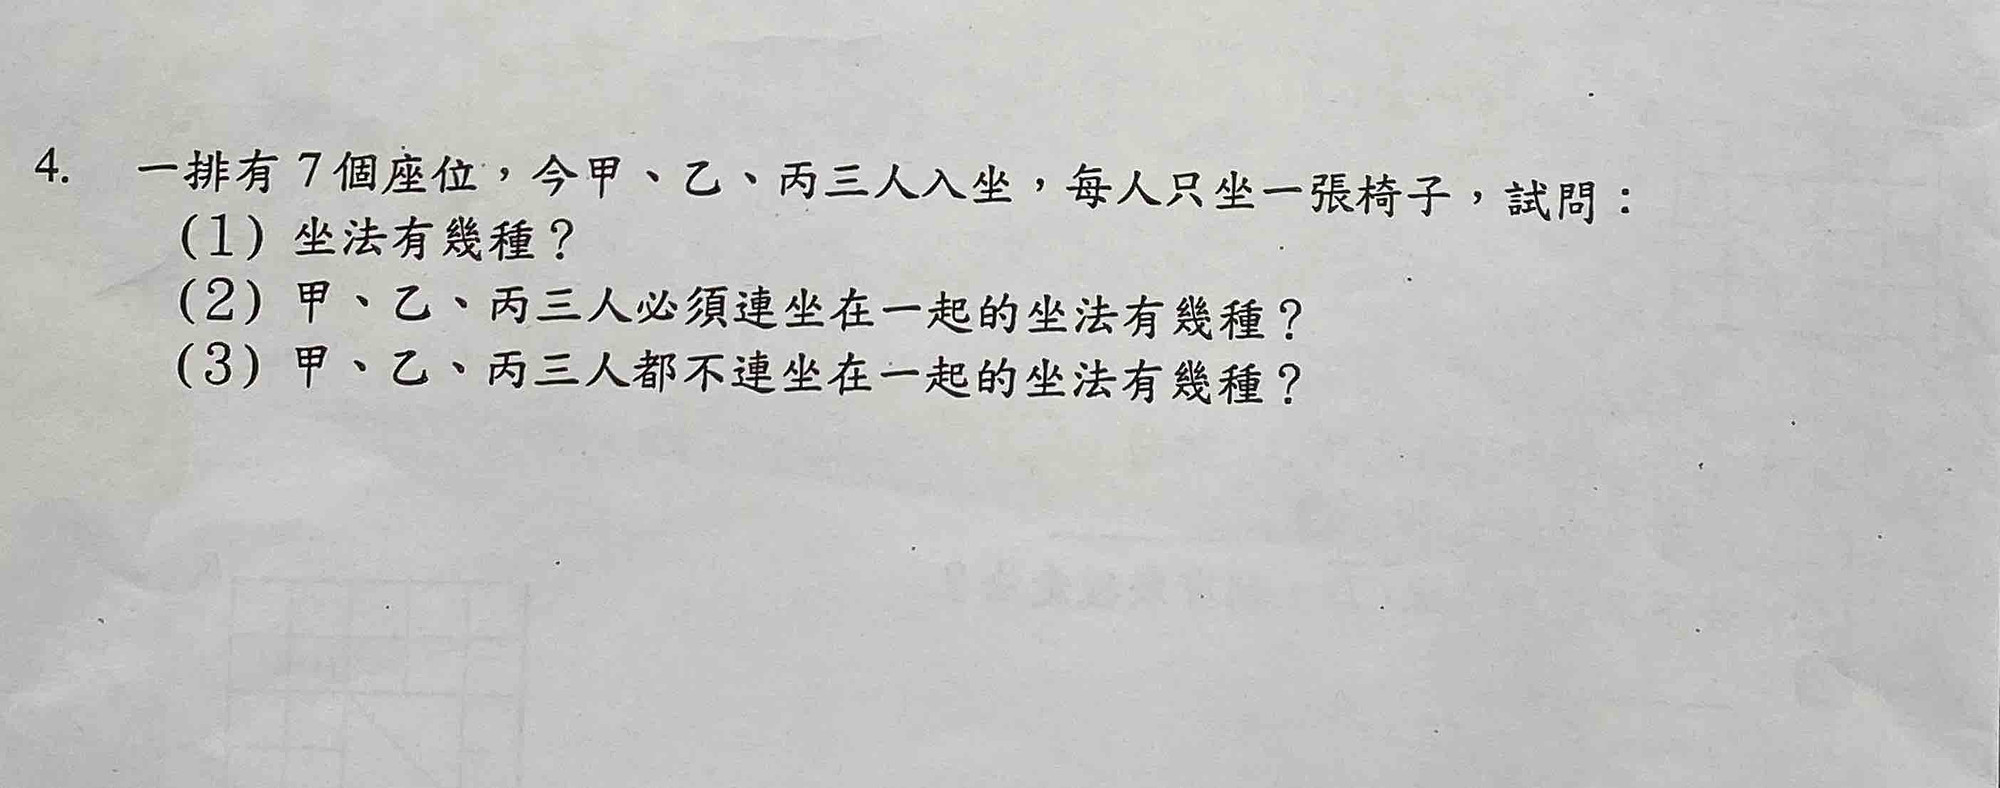 4. 一排有 7 個座位，今甲、乙、丙三人入坐，每人只坐一張椅子，試問：
(1) 坐法有幾種？
(2) 甲、乙、丙三人必須連坐在一起的坐法有幾種？
(3) 甲、乙、丙三人都不連坐在一起的坐法有幾種？